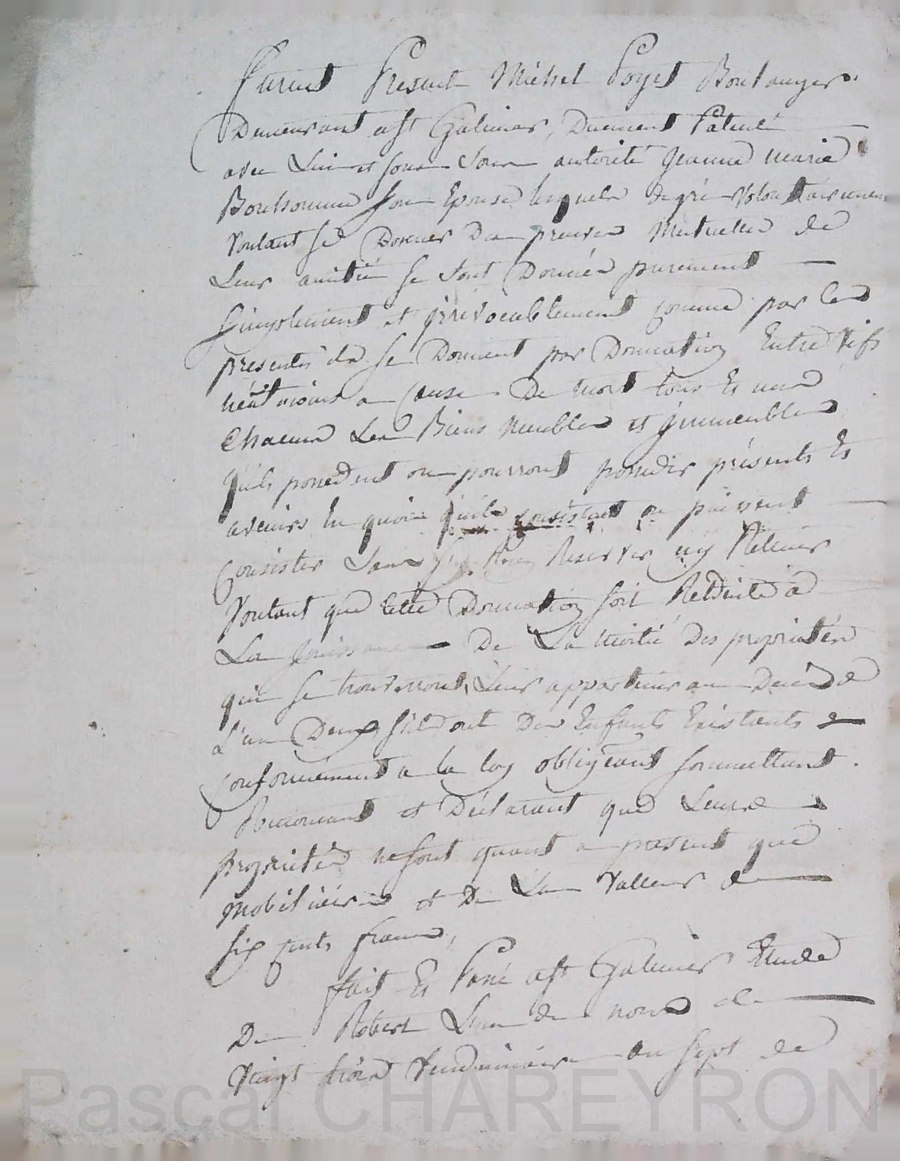 furent Present Michel Poyet Boulanger
Demeurant a St Galmier, Duement Patenté
avec Lui et sous son autorité Jeanne Marie
Bonhomme son Epouse lesquels de gré volontairement
voulant se Donner Des preuves Mutuelles de
Leur amitié se sont Donnés purement
simplement et irrévocablement comme par les
presentes ils se Donnent par Donnation Entre vifs
néatmoins a cause De mort tous Et un
Chacun Les Biens Meubles et immeubles
qu'ils possedent ou pourront posseder présents Et
avenirs En quoi qu'ils consistent ou puissent
Consister sans Rien Reserver ny Retenir
voulant que cette Donnation soit Reduite a
La jouissance De La moitié Des propriétés
qui se trouverront Leur appartenir au Decès de
L'un Deux s'il dont Des Enfants Existants
conformement a la loy obligeant soumettant
Renoncant et Déclarant que Leurs
propriétés ne sont quant a present que
Mobiliéres et De La valleur de
six cents francs,
fait Et Passé a St Galmier Etude
De Robert L'un de nous le
vingt trois vendemiaire an sept de
Pascal CHAREYRON